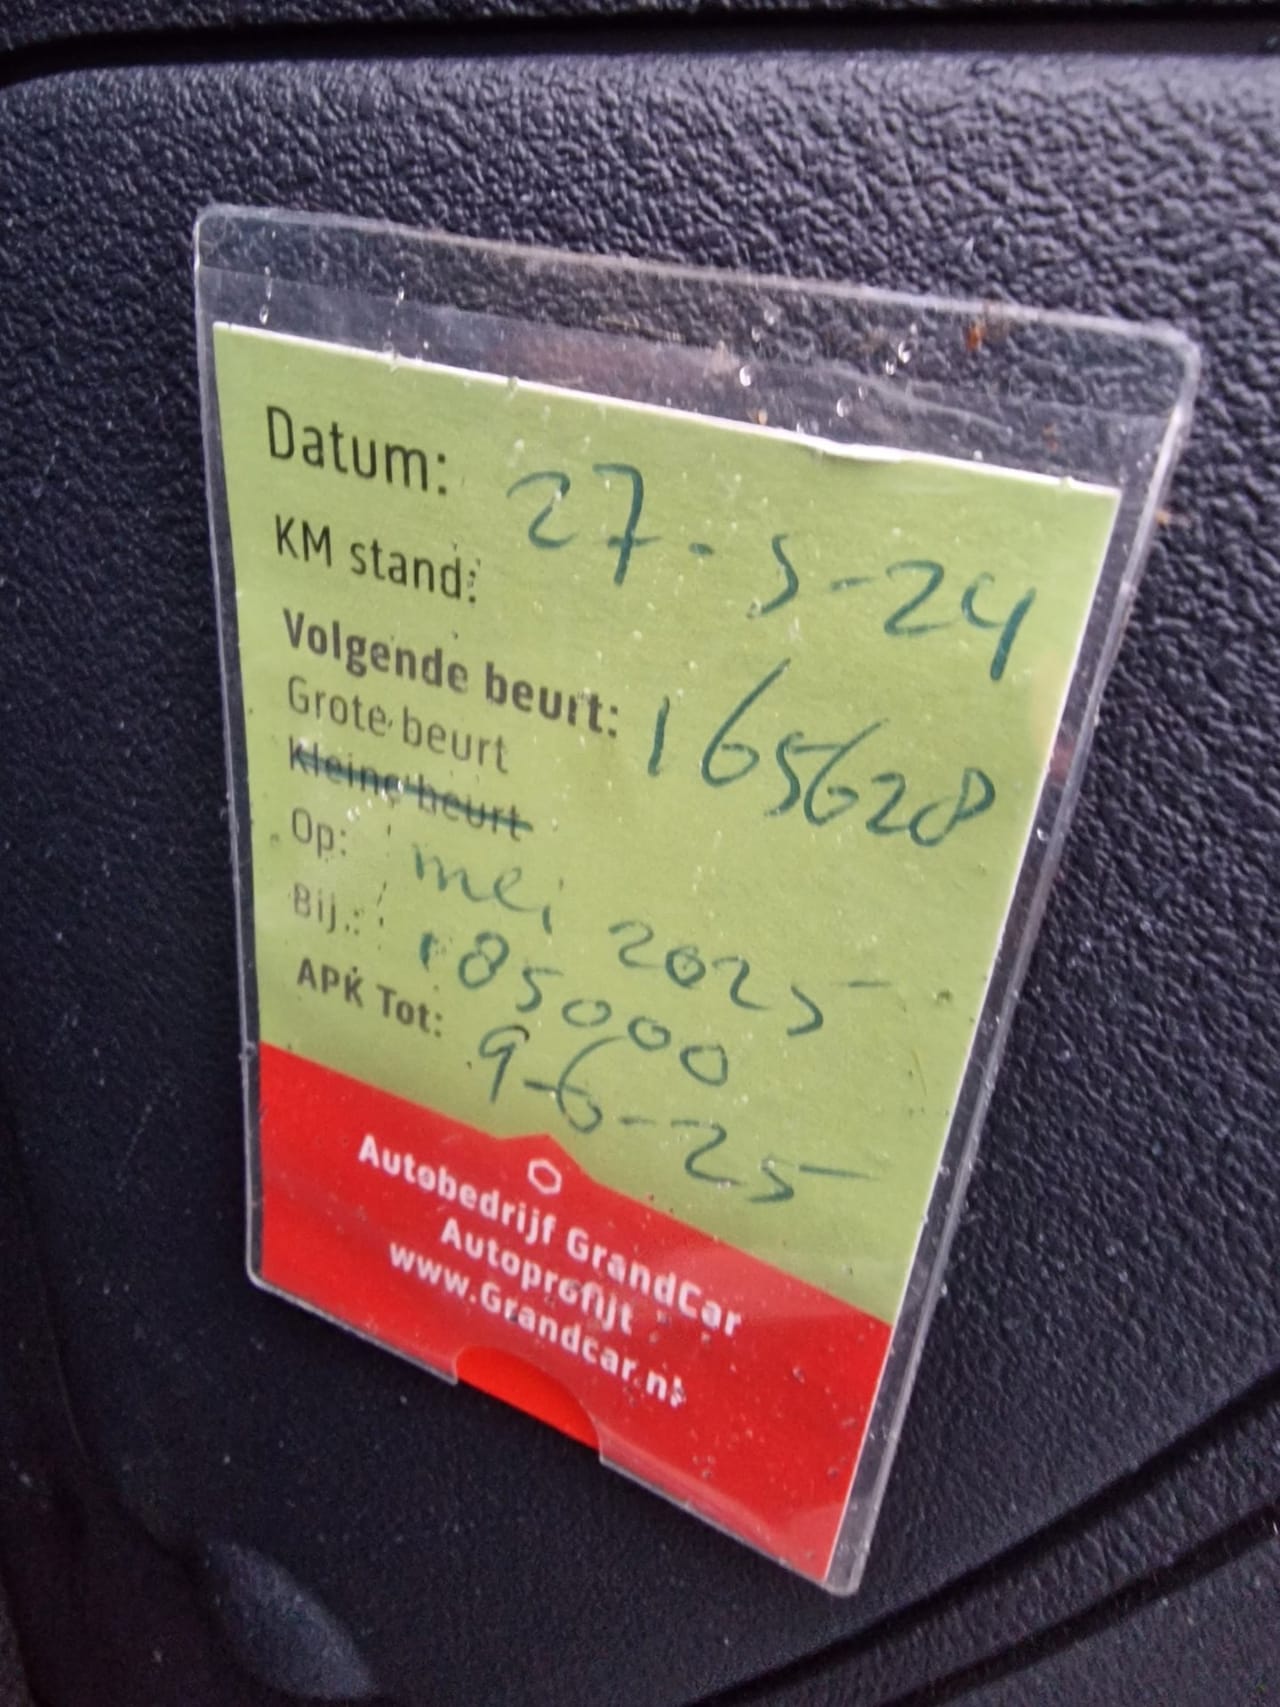 Datum: 27-5-24
KM stand: 165628
Volgende beurt:
Grote beurt
Kleine beurt
Op: mei 2025
Bij.: 185000
APK Tot: 9-6-25
Autobedrijf GrandCar
Autoprofijt
www.Grandcar.nl